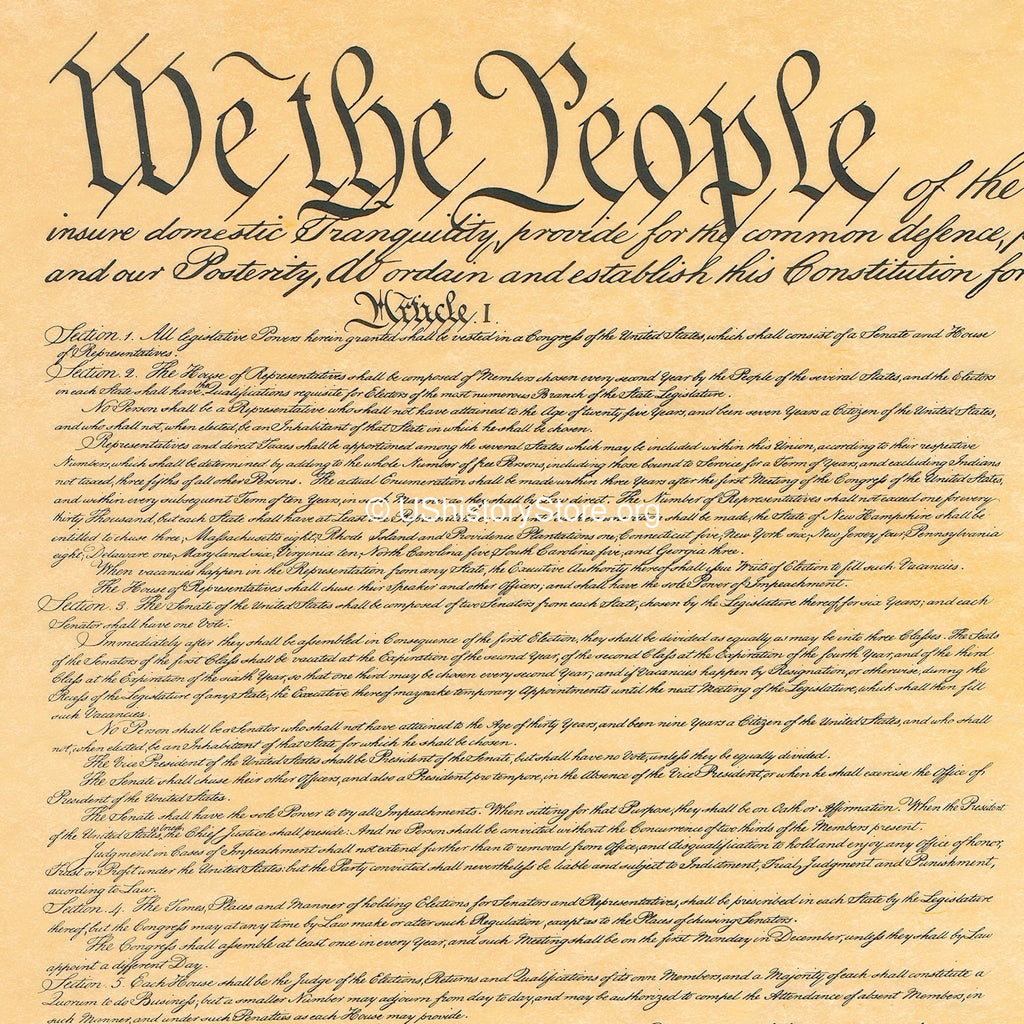 We the People of the
insure domestic Tranquility, provide for the common defence,
and our Posterity, do ordain and establish this Constitution for
Article. I
Section. 1. All legislative Powers herein granted shall be vested in a Congress of the United States, which shall consist of a Senate and House
of Representatives.
Section. 2. The House of Representatives shall be composed of Members chosen every second Year by the People of the several States, and the Electors
in each State shall have the Qualifications requisite for Electors of the most numerous Branch of the State Legislature.
No Person shall be a Representative who shall not have attained to the Age of twenty five Years, and been seven Years a Citizen of the United States,
and who shall not, when elected, be an Inhabitant of that State in which he shall be chosen.
Representatives and direct Taxes shall be apportioned among the several States which may be included within this Union, according to their respective
Numbers, which shall be determined by adding to the whole Number of free Persons, including those bound to Service for a Term of Years, and excluding Indians
not taxed, three fifths of all other Persons. The actual Enumeration shall be made within three Years after the first Meeting of the Congress of the United States,
and within every subsequent Term of ten Years, in such Manner as they shall by Law direct. The Number of Representatives shall not exceed one for every
thirty Thousand, but each State shall have at Least one Representative; and until such enumeration shall be made, the State of New Hampshire shall be
© UShistoryStore.org
entitled to chuse three, Massachusetts eight, Rhode Island and Providence Plantations one, Connecticut five, New York six, New Jersey four, Pennsylvania
eight, Delaware one, Maryland six, Virginia ten, North Carolina five, South Carolina five, and Georgia three.
When vacancies happen in the Representation from any State, the Executive Authority thereof shall issue Writs of Election to fill such Vacancies.
The House of Representatives shall chuse their Speaker and other Officers; and shall have the sole Power of Impeachment.
Section. 3. The Senate of the United States shall be composed of two Senators from each State, chosen by the Legislature thereof, for six Years; and each
Senator shall have one Vote.
Immediately after they shall be assembled in Consequence of the first Election, they shall be divided as equally as may be into three Classes. The Seats
of the Senators of the first Class shall be vacated at the Expiration of the second Year, of the second Class at the Expiration of the fourth Year, and of the third
Class at the Expiration of the sixth Year, so that one third may be chosen every second Year; and if Vacancies happen by Resignation, or otherwise, during the
Recess of the Legislature of any State, the Executive thereof may make temporary Appointments until the next Meeting of the Legislature, which shall then fill
such Vacancies.
No Person shall be a Senator who shall not have attained to the Age of thirty Years, and been nine Years a Citizen of the United States, and who shall
not, when elected, be an Inhabitant of that State for which he shall be chosen.
The Vice President of the United States shall be President of the Senate, but shall have no Vote, unless they be equally divided.
The Senate shall chuse their other Officers, and also a President pro tempore, in the Absence of the Vice President, or when he shall exercise the Office of
President of the United States.
The Senate shall have the sole Power to try all Impeachments. When sitting for that Purpose, they shall be on Oath or Affirmation. When the President
of the United States is tried, the Chief Justice shall preside: And no Person shall be convicted without the Concurrence of two thirds of the Members present.
Judgment in Cases of Impeachment shall not extend further than to removal from office, and disqualification to hold and enjoy any office of honor,
Trust or Profit under the United States: but the Party convicted shall nevertheless be liable and subject to Indictment, Trial, Judgment and Punishment,
according to Law.
Section. 4. The Times, Places and Manner of holding Elections for Senators and Representatives, shall be prescribed in each State by the Legislature
thereof, but the Congress may at any time by Law make or alter such Regulation, except as to the Places of chusing Senators.
The Congress shall assemble at least once in every Year, and such Meeting shall be on the first Monday in December, unless they shall by Law
appoint a different Day.
Section. 5. Each House shall be the Judge of the Elections, Returns and Qualifications of its own Members, and a Majority of each shall constitute a
Quorum to do Business; but a smaller Number may adjourn from day to day, and may be authorized to compel the Attendance of absent Members, in
such Manner, and under such Penalties as each House may provide.